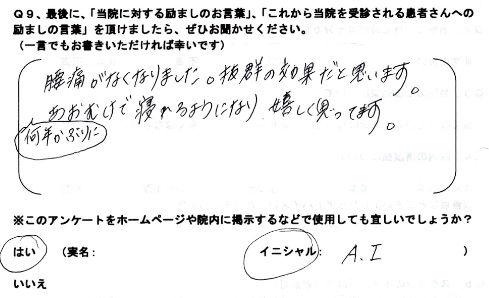 Q9、最後に、「当院に対する励ましのお言葉」、「これから当院を受診される患者さんへの
励ましの言葉」を頂けましたら、ぜひお聞かせください。
(一言でもお書きいただければ幸いです)
腰痛がなくなりました。抜群の効果だと思います。
あおむけで寝れるようになり 嬉しく思ってます。
何年かぶりに
※このアンケートをホームページや院内に掲示するなどで使用しても宜しいでしょうか?
はい (実名: イニシャル: A.I )
いいえ